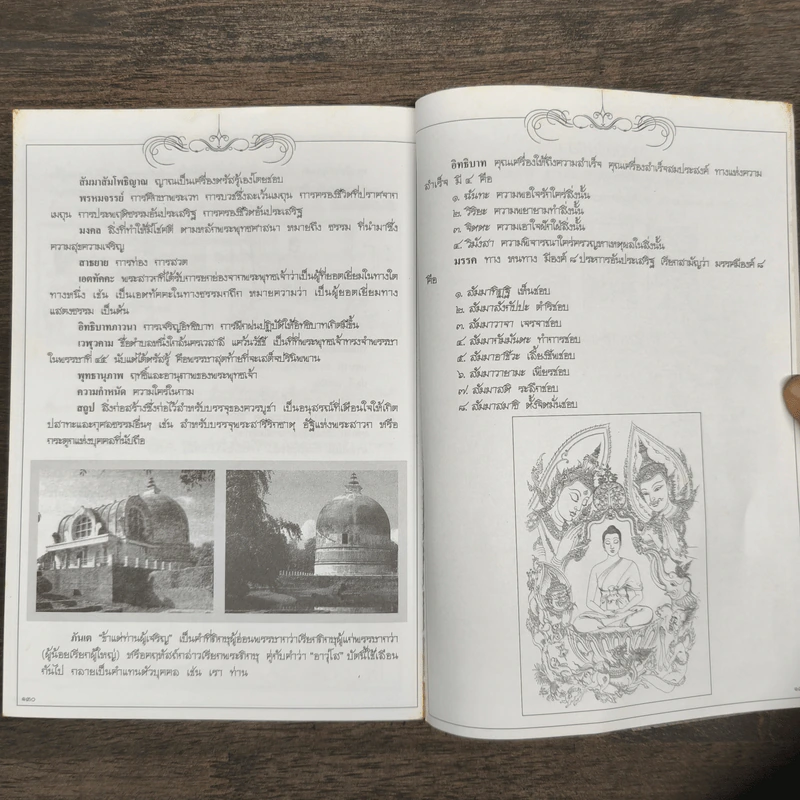 สัมมาสัมโพธิญาณ ญาณเป็นเครื่องตรัสรู้เองโดยชอบ
พรหมจรรย์ การศึกษาพระเวท การบวชซึ่งละเว้นเมถุน การครองชีวิตที่ปราศจาก
เมถุน การประพฤติธรรมอันประเสริฐ การครองชีวิตอันประเสริฐ
มงคล สิ่งที่ทำให้มีโชคดี ตามหลักพระพุทธศาสนา หมายถึง ธรรม ที่นำมาซึ่ง
ความสุขความเจริญ
สาธยาย การท่อง การสวด
เอตทัคคะ พระสาวกที่ได้รับการยกย่องจากพระพุทธเจ้าว่าเป็นผู้ที่ยอดเยี่ยมในทางใด
ทางหนึ่ง เช่น เป็นเอตทัคคะในทางธรรมกถึก หมายความว่า เป็นผู้ยอดเยี่ยมทาง
แสดงธรรม เป็นต้น
อิทธิบาทภาวนา การเจริญอิทธิบาท การฝึกฝนปฏิบัติให้อิทธิบาทเกิดมีขึ้น
เวฬุวคาม ชื่อตำบลหนึ่งใกล้นครเวสาลี แคว้นวัชชี เป็นที่ที่พระพุทธเจ้าทรงจำพรรษา
ในพรรษาที่ ๔๕ นับแต่ได้ตรัสรู้ คือพรรษาสุดท้ายที่จะเสด็จปรินิพพาน
พุทธานุภาพ ฤทธิ์และอานุภาพของพระพุทธเจ้า
ความกำหนัด ความใคร่ในกาม
สถูป สิ่งก่อสร้างซึ่งก่อไว้สำหรับบรรจุของควรบูชา เป็นอนุสรณ์ที่เตือนใจให้เกิด
ปสาทะและกุศลธรรมอื่นๆ เช่น สำหรับบรรจุพระสารีริกธาตุ อัฐิแห่งพระสาวก หรือ
กระดูกแห่งบุคคลที่นับถือ
ภันเต "ข้าแต่ท่านผู้เจริญ" เป็นคำที่ภิกษุผู้อ่อนพรรษากว่าเรียกภิกษุผู้แก่พรรษากว่า
(ผู้น้อยเรียกผู้ใหญ่) หรือคฤหัสถ์กล่าวเรียกพระภิกษุ คู่กับคำว่า "อาวุโส" บัดนี้ใช้เลือน
กันไป กลายเป็นคำแทนตัวบุคคล เช่น เรา ท่าน
อิทธิบาท คุณเครื่องให้ถึงความสำเร็จ คุณเครื่องสำเร็จสมประสงค์ ทางแห่งความ
สำเร็จ มี ๔ คือ
๑. ฉันทะ ความพอใจรักใคร่สิ่งนั้น
๒. วิริยะ ความพยายามทำสิ่งนั้น
๓. จิตตะ ความเอาใจฝักใฝ่สิ่งนั้น
๔. วิมังสา ความพิจารณาใคร่ครวญหาเหตุผลในสิ่งนั้น
มรรค ทาง หนทาง มีองค์ ๘ ประการอันประเสริฐ เรียกสามัญว่า มรรคมีองค์ ๘
คือ
๑. สัมมาทิฏฐิ เห็นชอบ
๒. สัมมาสังกัปปะ ดำริชอบ
๓. สัมมาวาจา เจรจาชอบ
๔. สัมมากัมมันตะ ทำการชอบ
๕. สัมมาอาชีวะ เลี้ยงชีพชอบ
๖. สัมมาวายามะ เพียรชอบ
๗. สัมมาสติ ระลึกชอบ
๘. สัมมาสมาธิ ตั้งจิตมั่นชอบ